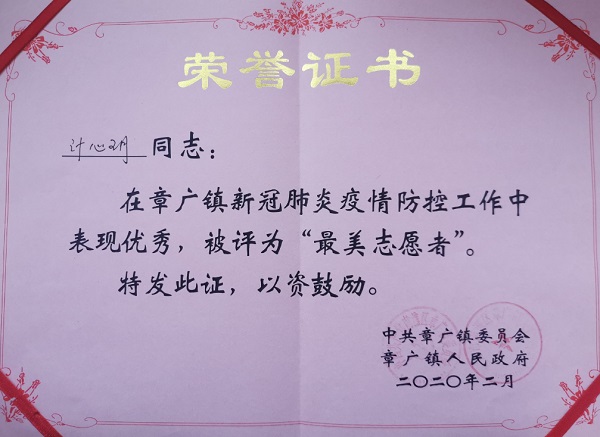 荣誉证书
计心玥 同志：
在章广镇新冠肺炎疫情防控工作中
表现优秀，被评为“最美志愿者”。
特发此证，以资鼓励。
中共章广镇委员会
章广镇人民政府
二〇二〇年二月